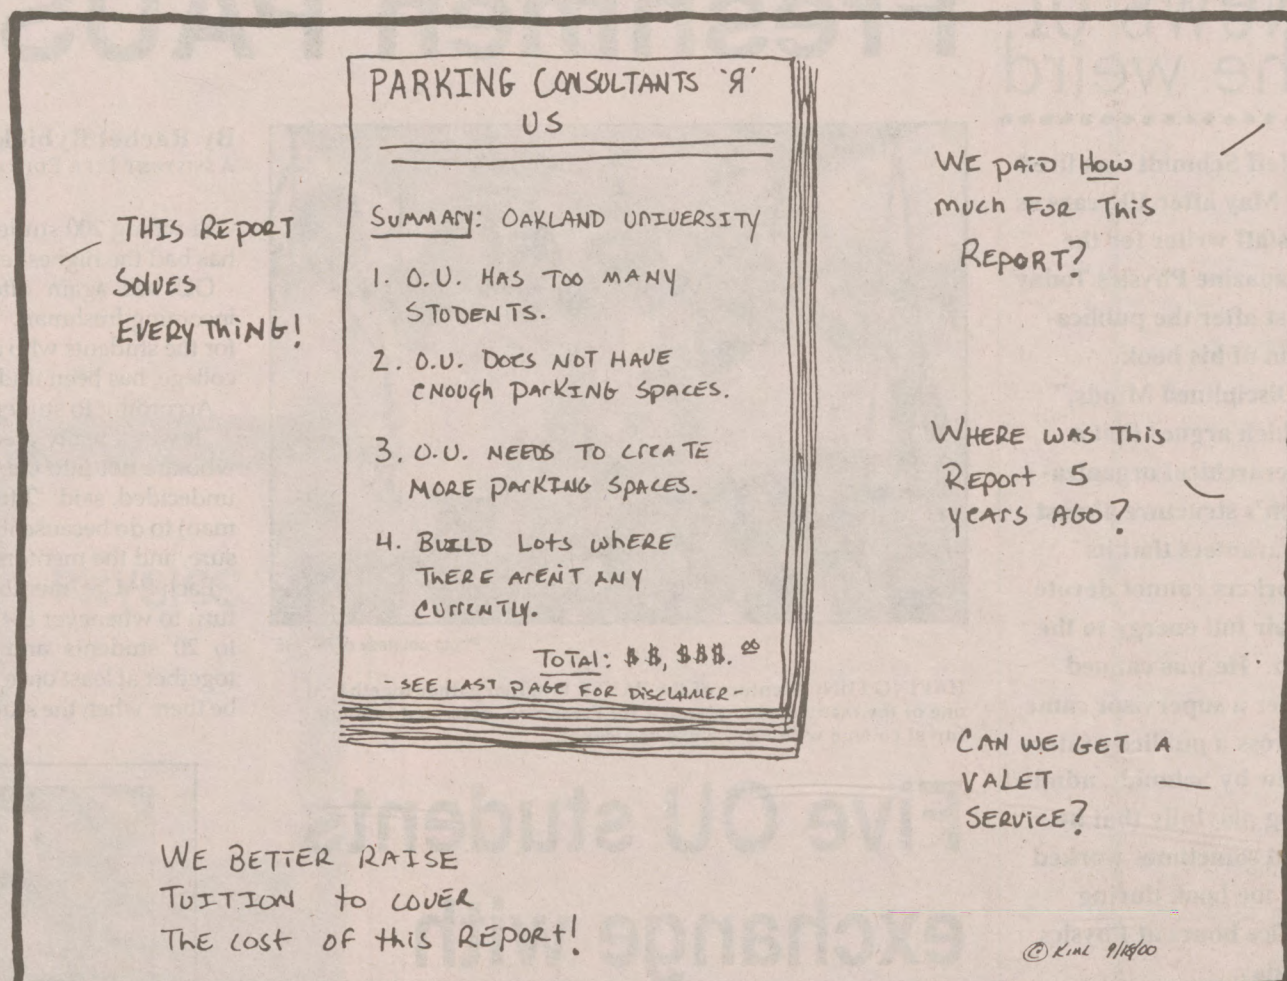 PARKING CONSULTANTS 'Я'
US
SUMMARY: OAKLAND UNIVERSITY
1. O.U. HAS TOO MANY
STUDENTS.
2. O.U. DOES NOT HAVE
ENOUGH PARKING SPACES.
3. O.U. NEEDS TO CREATE
MORE PARKING SPACES.
4. BUILD LOTS WHERE
THERE AREN'T ANY
CURRENTLY.
TOTAL: $$,$$$.00
-SEE LAST PAGE FOR DISCLAIMER-
THIS REPORT
SOLVES
EVERYTHING!
WE PAID HOW
MUCH FOR THIS
REPORT?
WHERE WAS THIS
REPORT 5
YEARS AGO?
CAN WE GET A
VALET
SERVICE?
WE BETTER RAISE
TUITION TO COVER
THE COST OF THIS REPORT!